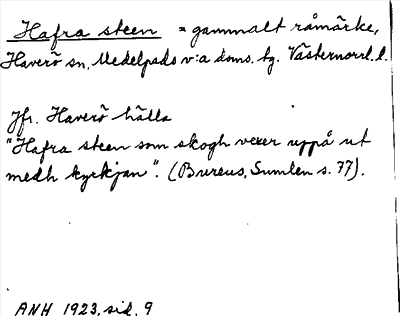 Hafra steen = gammalt råmärke,
Haverö sn, Medelpads v:a doms. tg. Västernorrl. l.
Jfr. Haverö hälla
"Hafra steen som skogh vexer uppå ut
medh kyrkjan". (Bureus, Sumlen s. 77).
ANH 1923, sid. 9